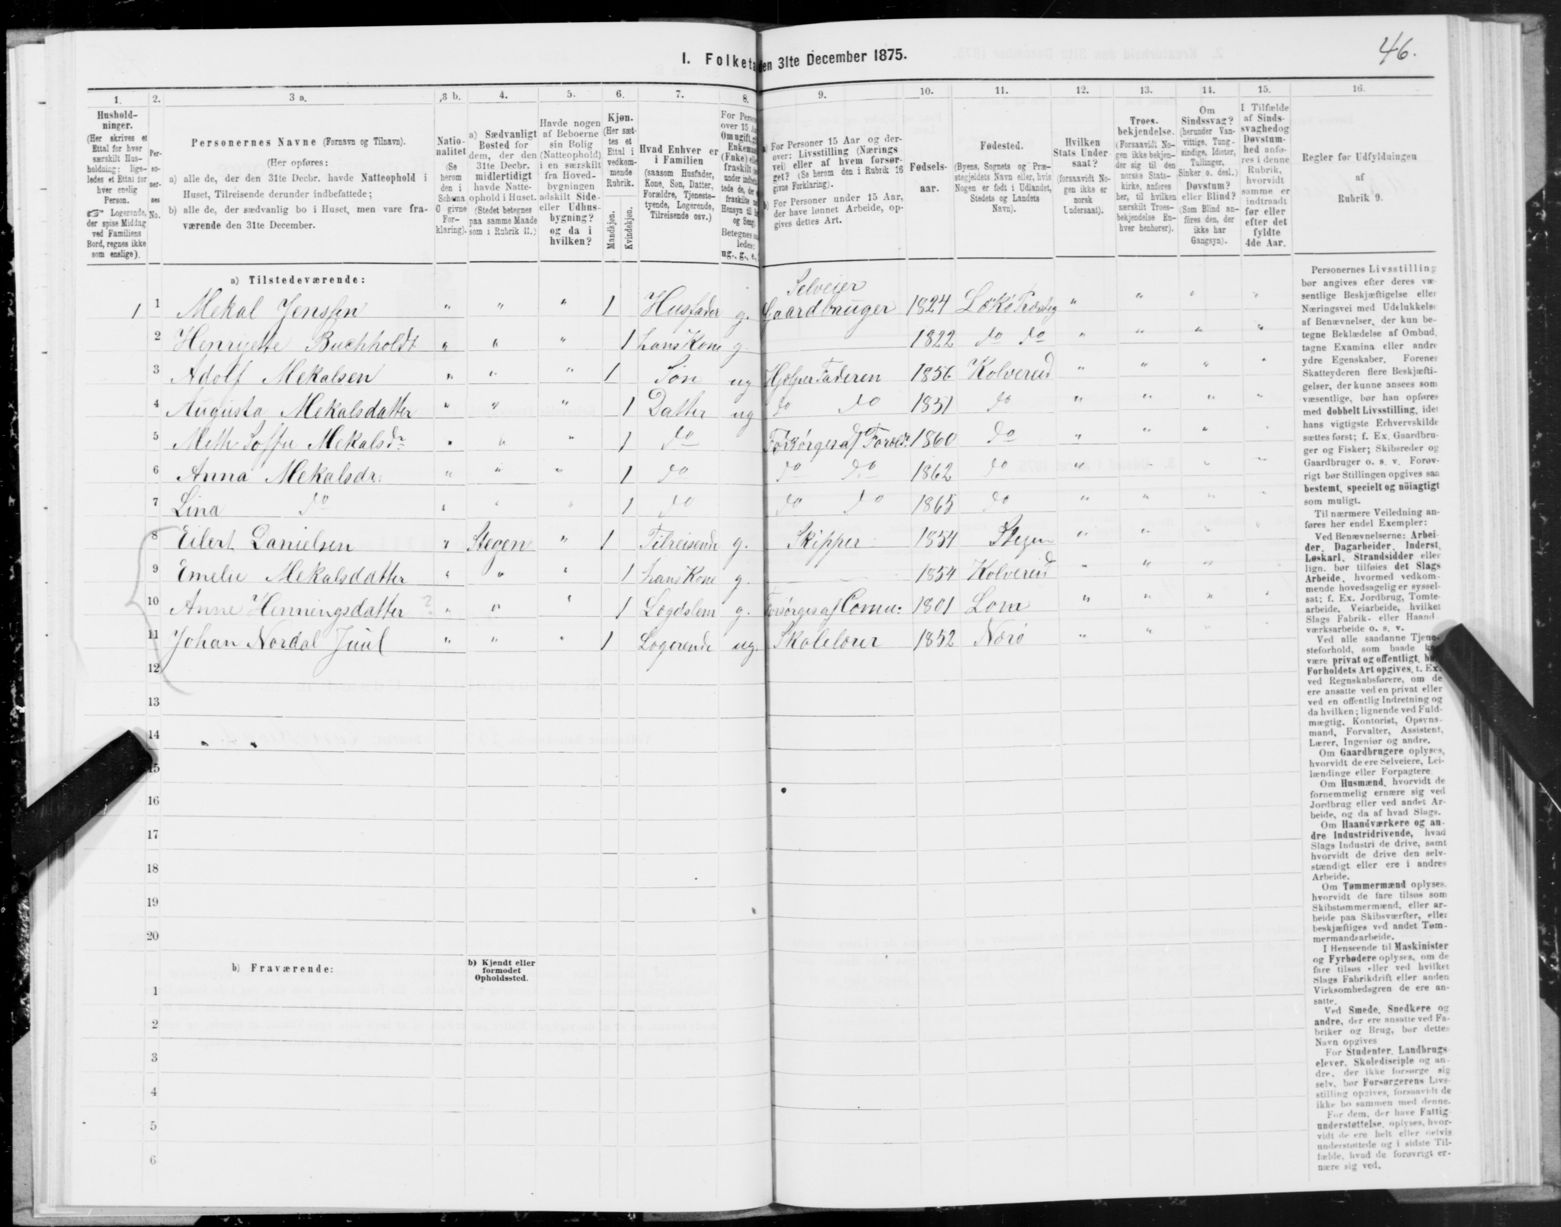 46.
I. Folketæ en 31te December 1875.
1. 2. 3 a. 3 b. 4. 5. 6. 7. 8. 9. 10. 11. 12. 13. 14. 15. 16.
Hushold-
ninger.
(Her skrives et
Ettal for hver
særskilt Hus-
holdning; lige-
ledes et Ettal for
hver enslig
Person.
☞ Logerende,
der spise Middag
ved Familiens
Bord, regnes ikke
som enslige).
Per-
so-
ner-
nes
No.
Personernes Navne (Fornavn og Tilnavn).
(Her opføres:
a) alle de, der den 31te Decbr. havde Natteophold i
Huset, Tilreisende derunder indbefattede;
b) alle de, der sædvanlig bo i Huset, men vare fra-
værende den 31te December.
Natio-
nalitet
(Se
herom
den i
Schema
O givne
For-
klaring).
a) Sædvanligt
Bosted for
dem, der den
31te Decbr.
midlertidigt
havde Natte-
ophold i Huset.
(Stedet betegnes
paa samme Maade
som i Rubrik 11.)
Havde nogen
af Beboerne
sin Bolig
(Natteophold)
i en særskilt
fra Hoved-
bygningen
adskilt Side-
eller Udhus-
bygning?
og da i
hvilken?
Kjøn.
(Her sæt-
tes et
Ettal i
vedkom-
mende
Rubrik.
Mandkjøn.
Kvindekjøn.
Hvad Enhver er
i Familien
(saasom Husfader,
Kone, Søn, Datter,
Forældre, Tjeneste-
tyende, Logerende,
Tilreisende osv.)
For Perso
over 15 A
Om ugift, g
Enkeman
(Enke) elle
fraskilt
ug., g., e.,
a) For Personer 15 Aar og der-
over: Livsstilling (Nærings
vei) eller af hvem forsør-
get? (Se herom den i Rubrik 16
givne Forklaring).
b) For Personer under 15 Aar,
der have lønnet Arbeide, op-
gives dettes Art.
Fødsels-
aar.
Fødested.
(Byens, Sognets og Præ-
stegjeldets Navn eller, hvis
Nogen er født i Udlandet,
Stedets og Landets
Navn).
Hvilken
Stats Under
saat?
(foraavidt No-
gen ikke er
norsk
Undersaat).
Troes-
bekjendelse.
(Forsaavidt No-
gen ikke bekjen-
der sig til den
norske Stats-
kirke, anføres
her, til hvilken
særskilt Troes-
bekjendelse En-
hver henhører).
Om
Sindssvag?
(herunder Van-
vittige, Tung-
sindige, Idioter,
Tullinger,
Sinker o. desl.)
Døvstum?
eller Blind?
(Som Blind an-
føres den, der
ikke har
Gangsyn).
I Tilfælde
af Sinds-
svaghed og
Døvstum-
hed anfø-
res i denne
Rubrik,
hvorvidt
samme er
indtraadt
før eller
efter det
fyldte
4de Aar.
Regler for Udfyldningen
af
Rubrik 9.
a) Tilstedeværende:
Selveier
1 1 Mekal Jenssen " " " 1 Husfader g. Gaardbruger 1824 Lekø " " " "
2 Henriette Buchholdt " " " 1 hans Kone g. 1822 do do " " " "
3 Adolf Mekalsen " " " 1 Søn ug Hjelper Faderen 1856 Kolvereid " " " "
4 Augusta Mekalsdatter " " " 1 Datter ug do do 1851 do " " " "
5 Meth Soffie Mekalsdr " " " 1 do Forsørges af 1860 do " " " "
6 Anna Mekalsdr: " " " 1 do do do 1862 do " " " "
7 Lina do " " " 1 do do do 1865 do " " " "
8 Eilert Danielsen " Stegen " 1 Tilreisende g. Skipper 1851 Stegen " " " "
9 Emelie Mekalsdatter " " " 1 hans Kone g. 1854 Kolvereid " " " "
10 Anne Henningsdatter ? " " " 1 Lægdslem g. Forsørges af Comu: 1801 Lom " " " "
11 Johan Nordal Juul " " " 1 Logerende ug. Skolelærer 1852 Nærø " " " "
12
13
14
15
16
17
18
19
20
b) Fraværende:
b) Kjendt eller
formodet
Opholdssted.
1
2
3
4
5
6
Personernes Livsstilling
bør angives efter deres væ-
sentlige Beskjæftigelse eller
Næringsvei med Udelukkelse
af Benævnelser, der kun be-
tegne Beklædelse af Ombud,
tagne Examina eller andre
ydre Egenskaber. Forener
Skatteyderen flere Beskjæfti-
gelser, der kunne ansees som
væsentlige, bør han opføres
med dobbelt Livsstilling, idet
hans vigtigste Erhvervskilde
sættes først; f. Ex. Gaardbru-
ger og Fisker; Skibsreder og
Gaardbruger o. s. v. Forøv-
rigt bør Stillingen opgives saa
bestemt, specielt og nøiagtigt
som muligt.
Til nærmere Veiledning an-
føres her endel Exempler:
Ved Benævnelserne: Arbei-
der, Dagarbeider, Inderst,
Løskarl, Strandsidder eller
lign. bør tilføies det Slags
Arbeide, hvormed vedkom-
mende hovedsagelig er syssel-
sat; f. Ex. Jordbrug, Tomte-
arbeide, Veiarbeide, hvilket
Slags Fabrik- eller Haand
værksarbeide o. s. v.
Ved alle saadanne Tjene-
steforhold, som baade k
være privat og offentligt, bø
Forholdets Art opgives, t. Ex.
ved Regnskabsførere, om de
ere ansatte ved en privat eller
ved en offentlig Indretning og
da hvilken; lignende ved Fuld-
mægtig, Kontorist, Opsyns-
mand, Forvalter, Assistent,
Lærer, Ingeniør og andre.
Om Gaardbrugere oplyses,
hvorvidt de ere Selveiere, Lei-
lændinge eller Forpagtere.
Om Husmænd, hvorvidt de
fornemmelig ernære sig ved
Jordbrug eller ved andet Ar-
beide, og da af hvad Slags.
Om Haandværkere og an-
dre Industridrivende, hvad
Slags Industri de drive, samt
hvorvidt de drive den selv-
stændigt eller ere i andres
Arbeide.
Om Tømmermænd oplyses,
hvorvidt de fare tilsøs som
Skibstømmermænd, eller ar-
beide paa Skibsværfter, eller
beskjæftiges ved andet Tøm-
mermandsarbeide.
I Henseende til Maskinister
og Fyrbødere oplyses, om de
fare tilsøs eller ved hvilket
Slags Fabrikdrift eller anden
Virksombedsgren de ere an-
satte.
Ved Smede, Snedkere og
andre, der ere ansatte ved Fa-
briker og Brug, bør dettes
Navn opgives
For Studenter, Landbrugs-
elever, Skoledisciple og an-
dre, der ikke forsørge sig
selv, bør Forsørgerens Livs-
stilling opgives, forsaavidt de
ikke bo sammen med denne.
For dem, der have Fattig-
understøttelse, oplyses, hvor-
vidt de ere helt eller delvis
understøttede og i sidste Til-
fælde, hvad de forøvrigt er-
nære sig ved.